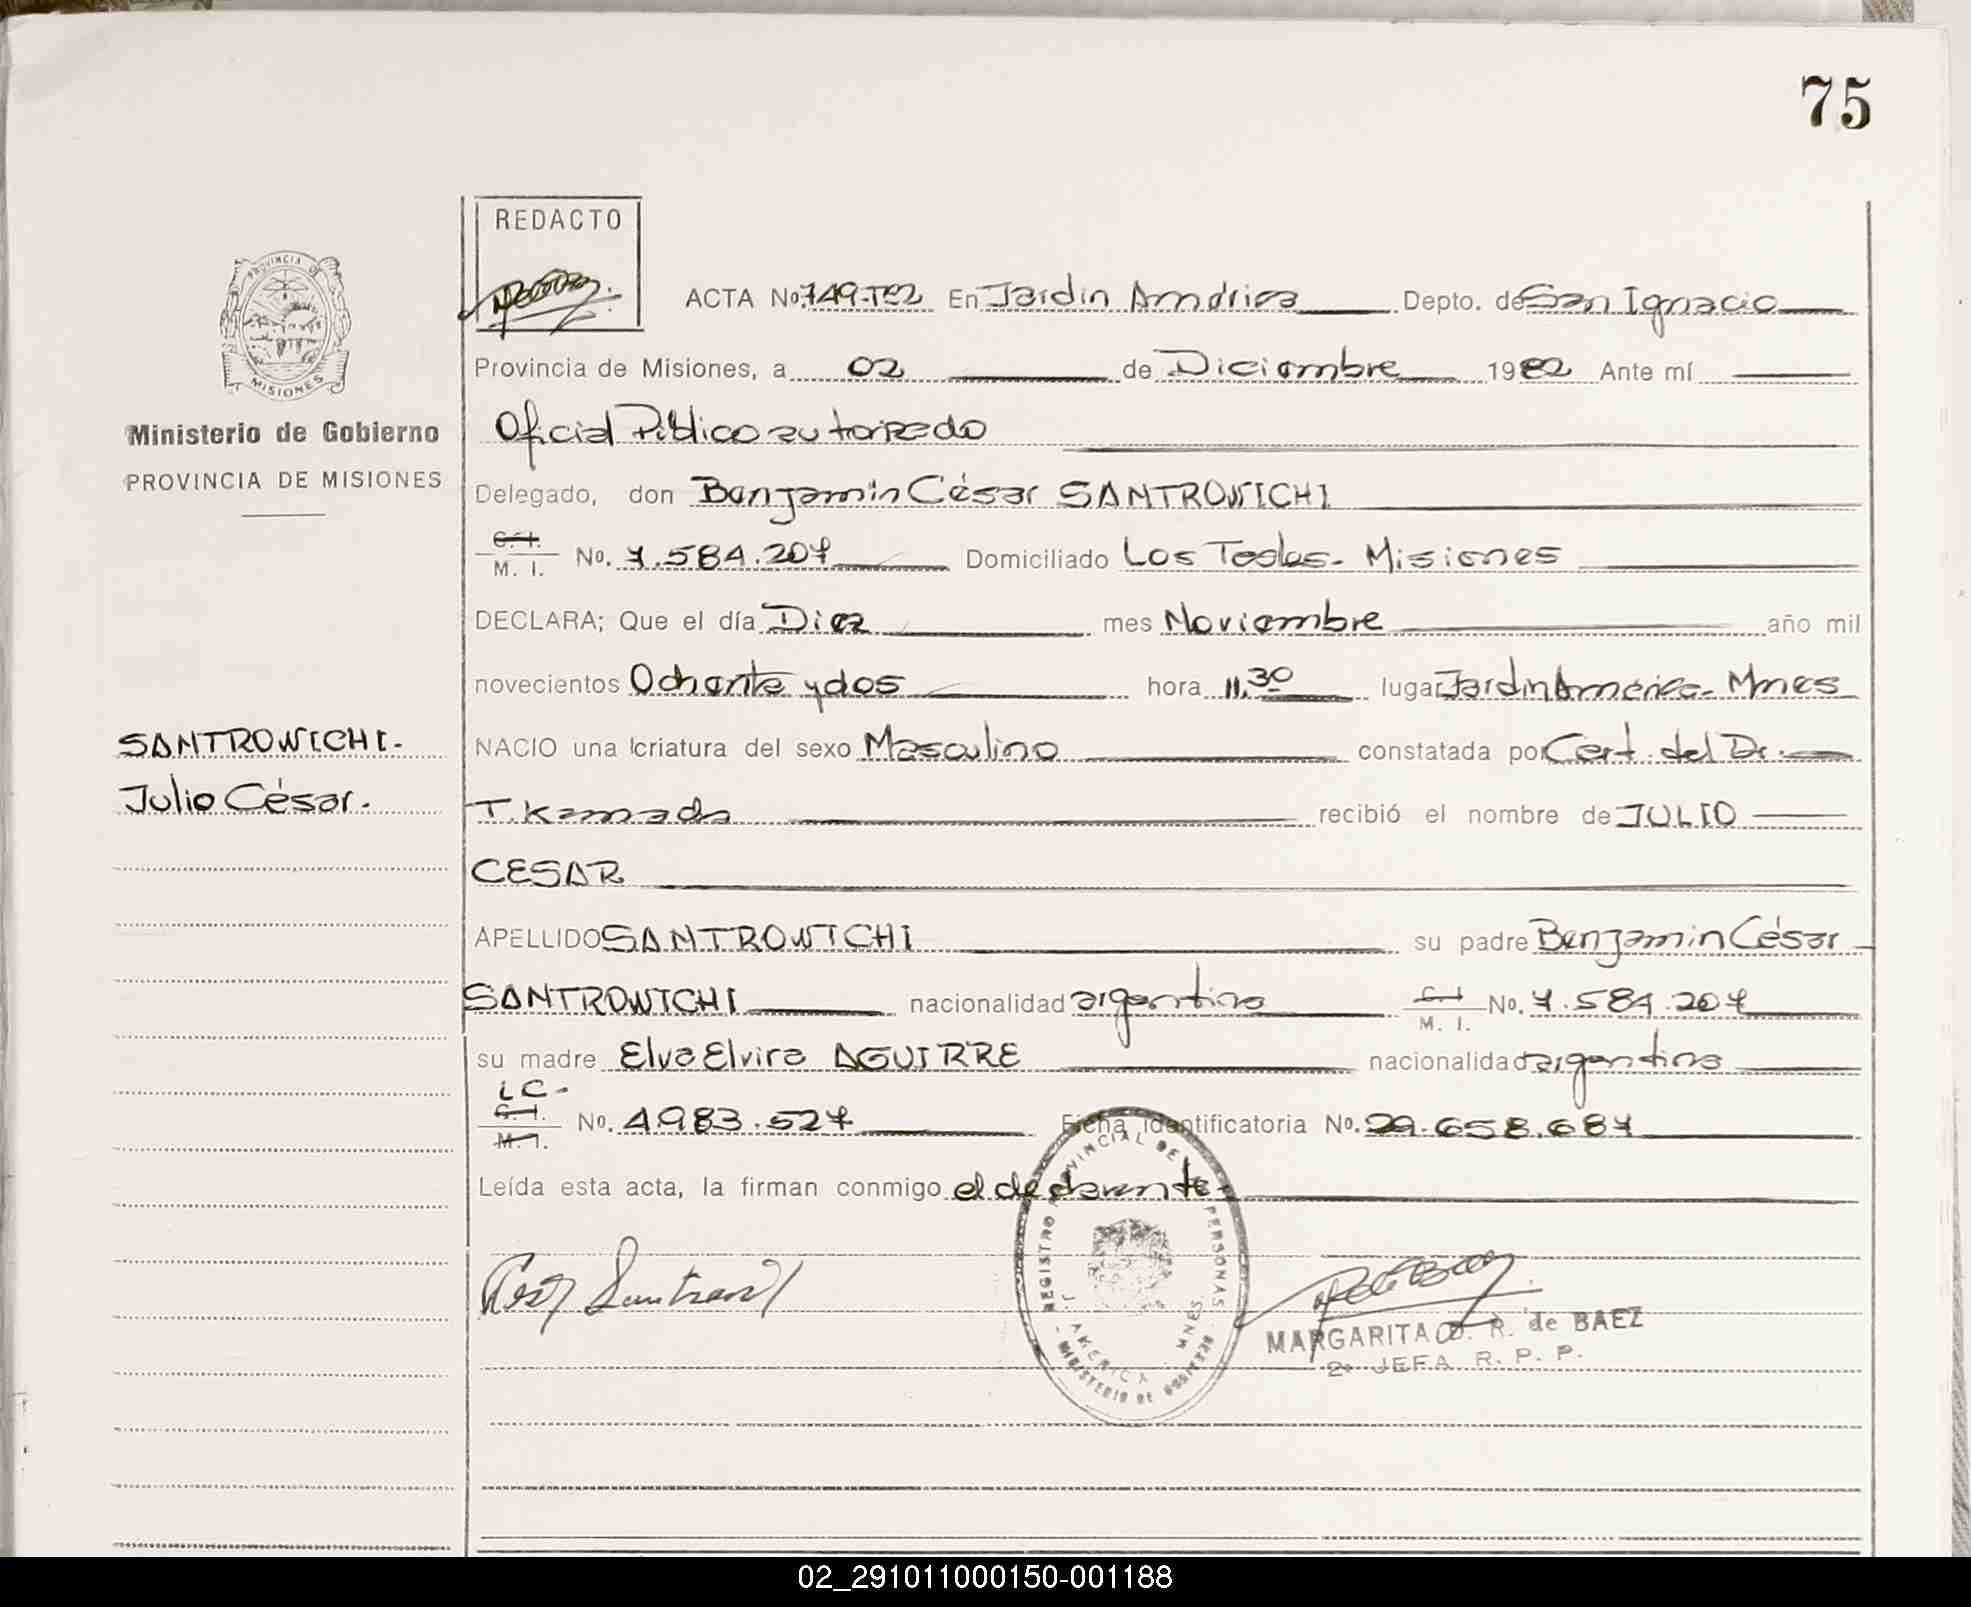 75
REDACTO
ACTA No. 749-T:2 En Jardin América Depto. de San Ignacio
Provincia de Misiones, a 02 de Diciembre 1982 Ante mí
Oficial Público autorizado
Ministerio de Gobierno
PROVINCIA DE MISIONES
Delegado, don Benjamin César SANTROWICHI
C. I.
M. I. No. 7.584.207 Domiciliado Los Teales - Misiones
DECLARA; Que el día Diez mes Noviembre año mil
novecientos Ochenta y dos hora 11.30 lugar Jardin América - Mnes
SANTROWICHI.
Julio César.
NACIO una criatura del sexo Masculino constatada por Cert. del Dr.
T. Kamada recibió el nombre de JULIO
CESAR
APELLIDO SANTROWICHI su padre Benjamin César
SANTROWICHI nacionalidad argentina C. I. M. I. No. 7.584.207
su madre Elva Elvira AGUIRRE nacionalidad argentina
LC-
C. I.
M. I. No. 4.983.527 Ficha identificatoria No. 29.658.687
Leída esta acta, la firman conmigo el declarante
REGISTRO PROVINCIAL DE PERSONAS
J. AMERICA MNES
MINISTERIO DE GOBIERNO
MARGARITA D. R. de BAEZ
2º JEFA R. P. P.
02_291011000150-001188